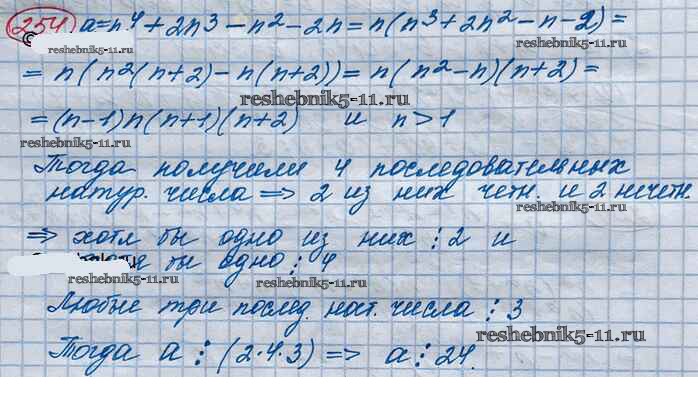 254 a=n⁴+2n³-n²-2n=n(n³+2n²-n-2)=
reshebnik5-11.ru
=n(n²(n+2)-n(n+2))=n(n²-n)(n+2)=
reshebnik5-11.ru
=(n-1)n(n+1)(n+2) и n>1
reshebnik5-11.ru
Тогда получили 4 последовательных
натур. числа => 2 из них четн. и 2 нечетн.
reshebnik5-11.ru
=> хотя бы одно из них ⋮ 2 и
бы одно ⋮ 4
reshebnik5-11.ru reshebnik5-11.ru
Любые три послед. нат. числа ⋮ 3
reshebnik5-11.ru
Тогда a ⋮ (2·4·3) => a ⋮ 24.
reshebnik5-11.ru